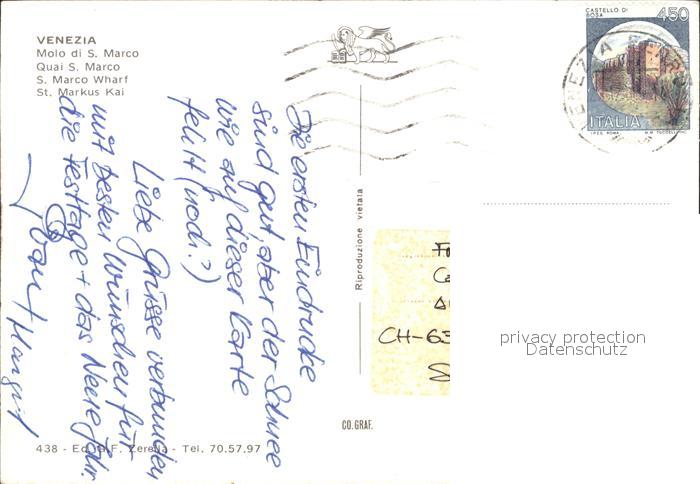 VENEZIA
Molo di S. Marco
Quai S. Marco
S. Marco Wharf
St. Markus Kai
CASTELLO DI
BOSA
450
ITALIA
I.P.Z.S. ROMA
Die ersten Eindrücke
sind gut, aber der Schnee
wie auf dieser Karte
fehlt (noch?)
Liebe Grüsse verbunden
mit besten Wünschen für
die Festtage + das Neue Jahr.
Margrit
Riproduzione vietata
CH-63
privacy protection
Datenschutz
CO. GRAF.
438 - Ed. G.F. Zerella - Tel. 70.57.97